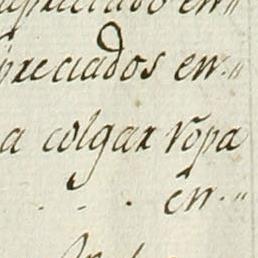 apreciado en"
preciados en"
a colgar ropa
en."